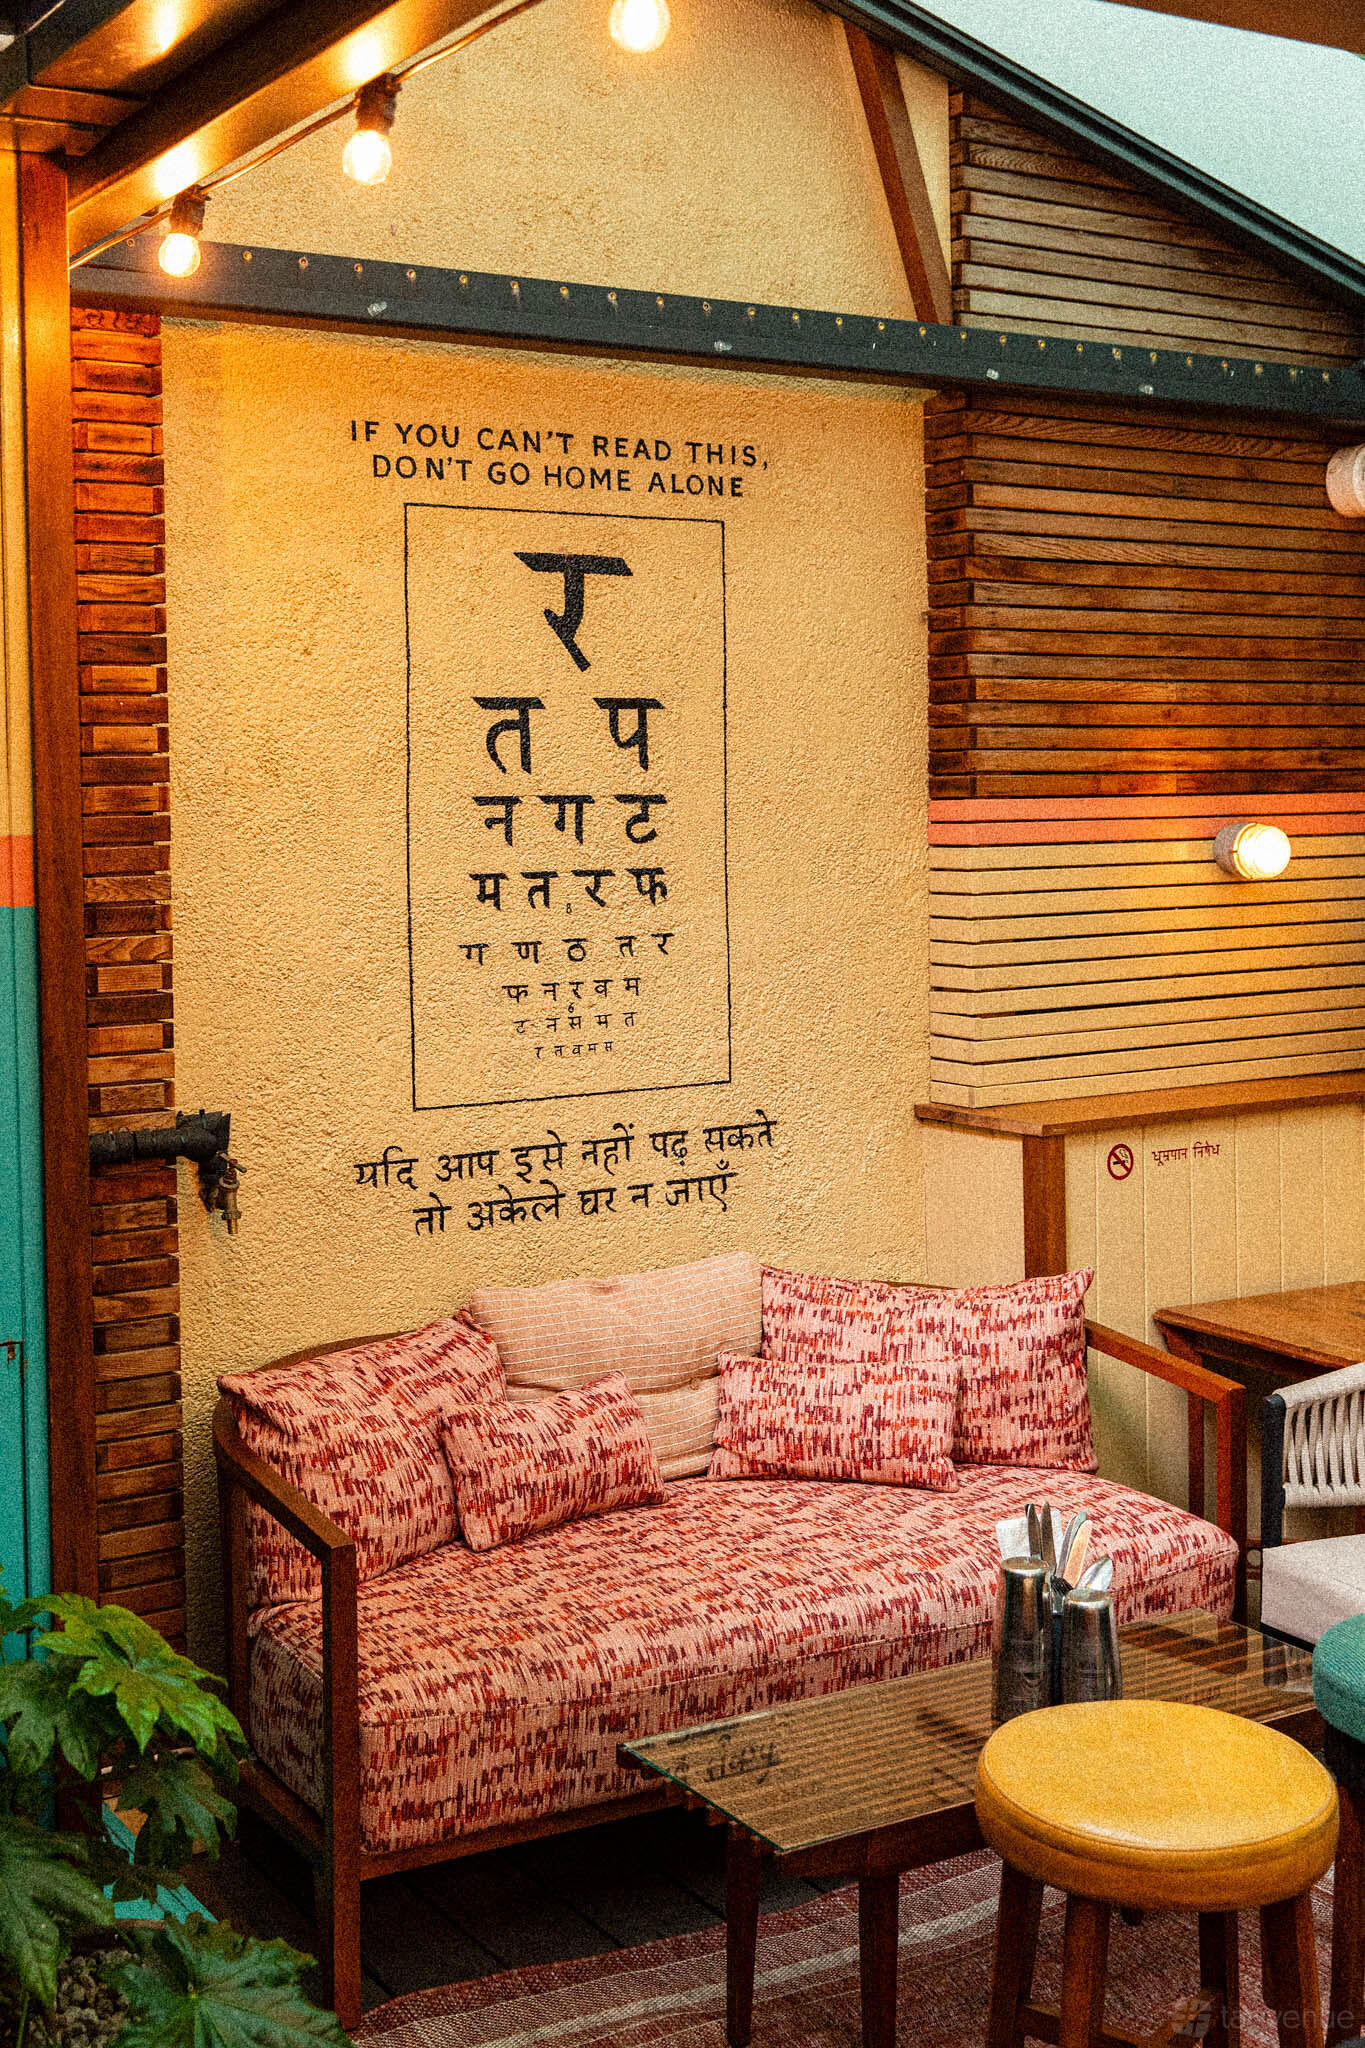 IF YOU CAN'T READ THIS,
DON'T GO HOME ALONE
र
त प
न ग ट
म त र फ
8
ग ण ठ त र
फ न र व म
6
ट न स म त
र त व म स
यदि आप इसे नहीं पढ़ सकते
तो अकेले घर न जाएँ
धूम्रपान निषेध
tagvenue